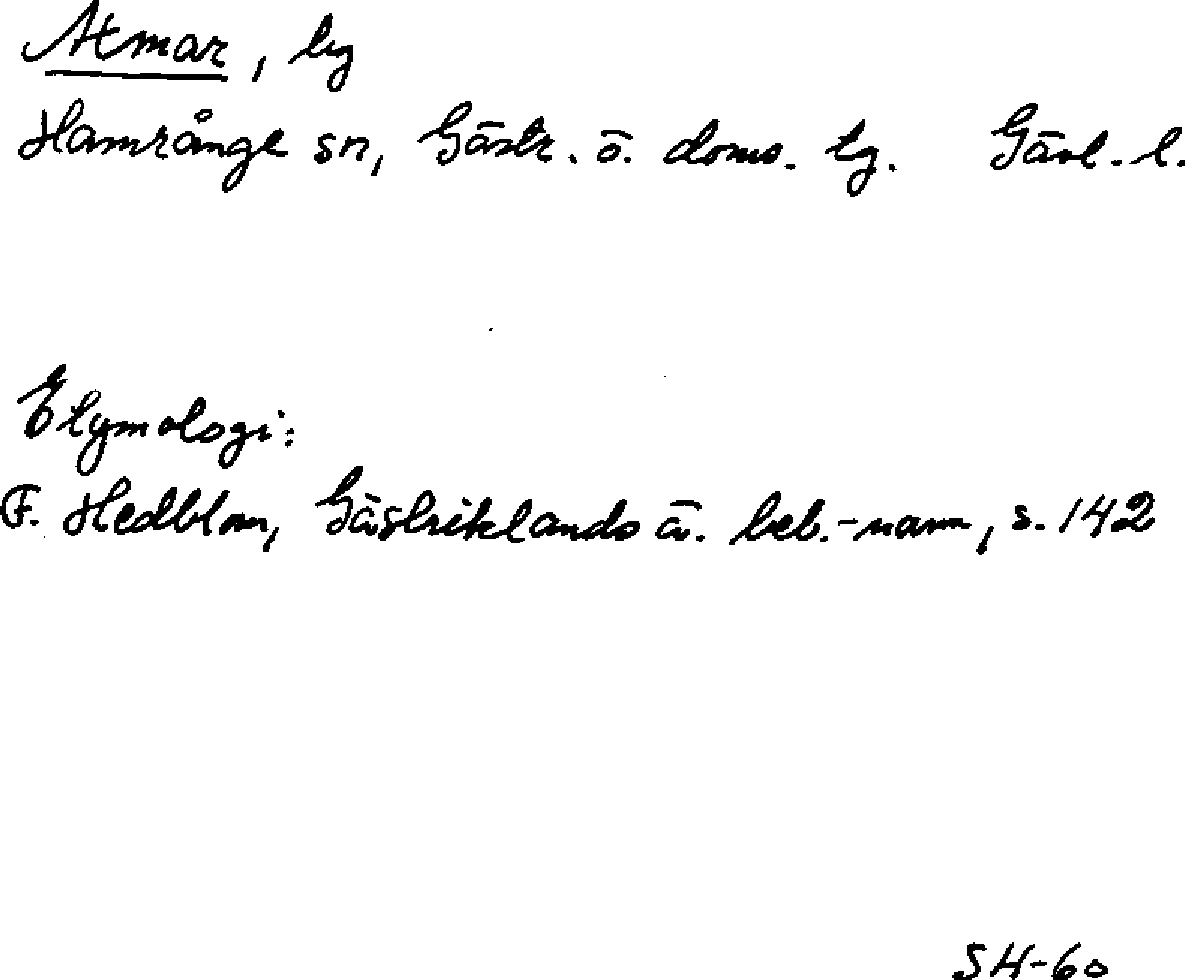 Åtmar, by
Hamrånge sn, Gästr. ö. doms. tg. Gävl. l.
Etymologi:
F. Hedblom, Gästriklands ä. beb.-namn, s. 142
SH-60